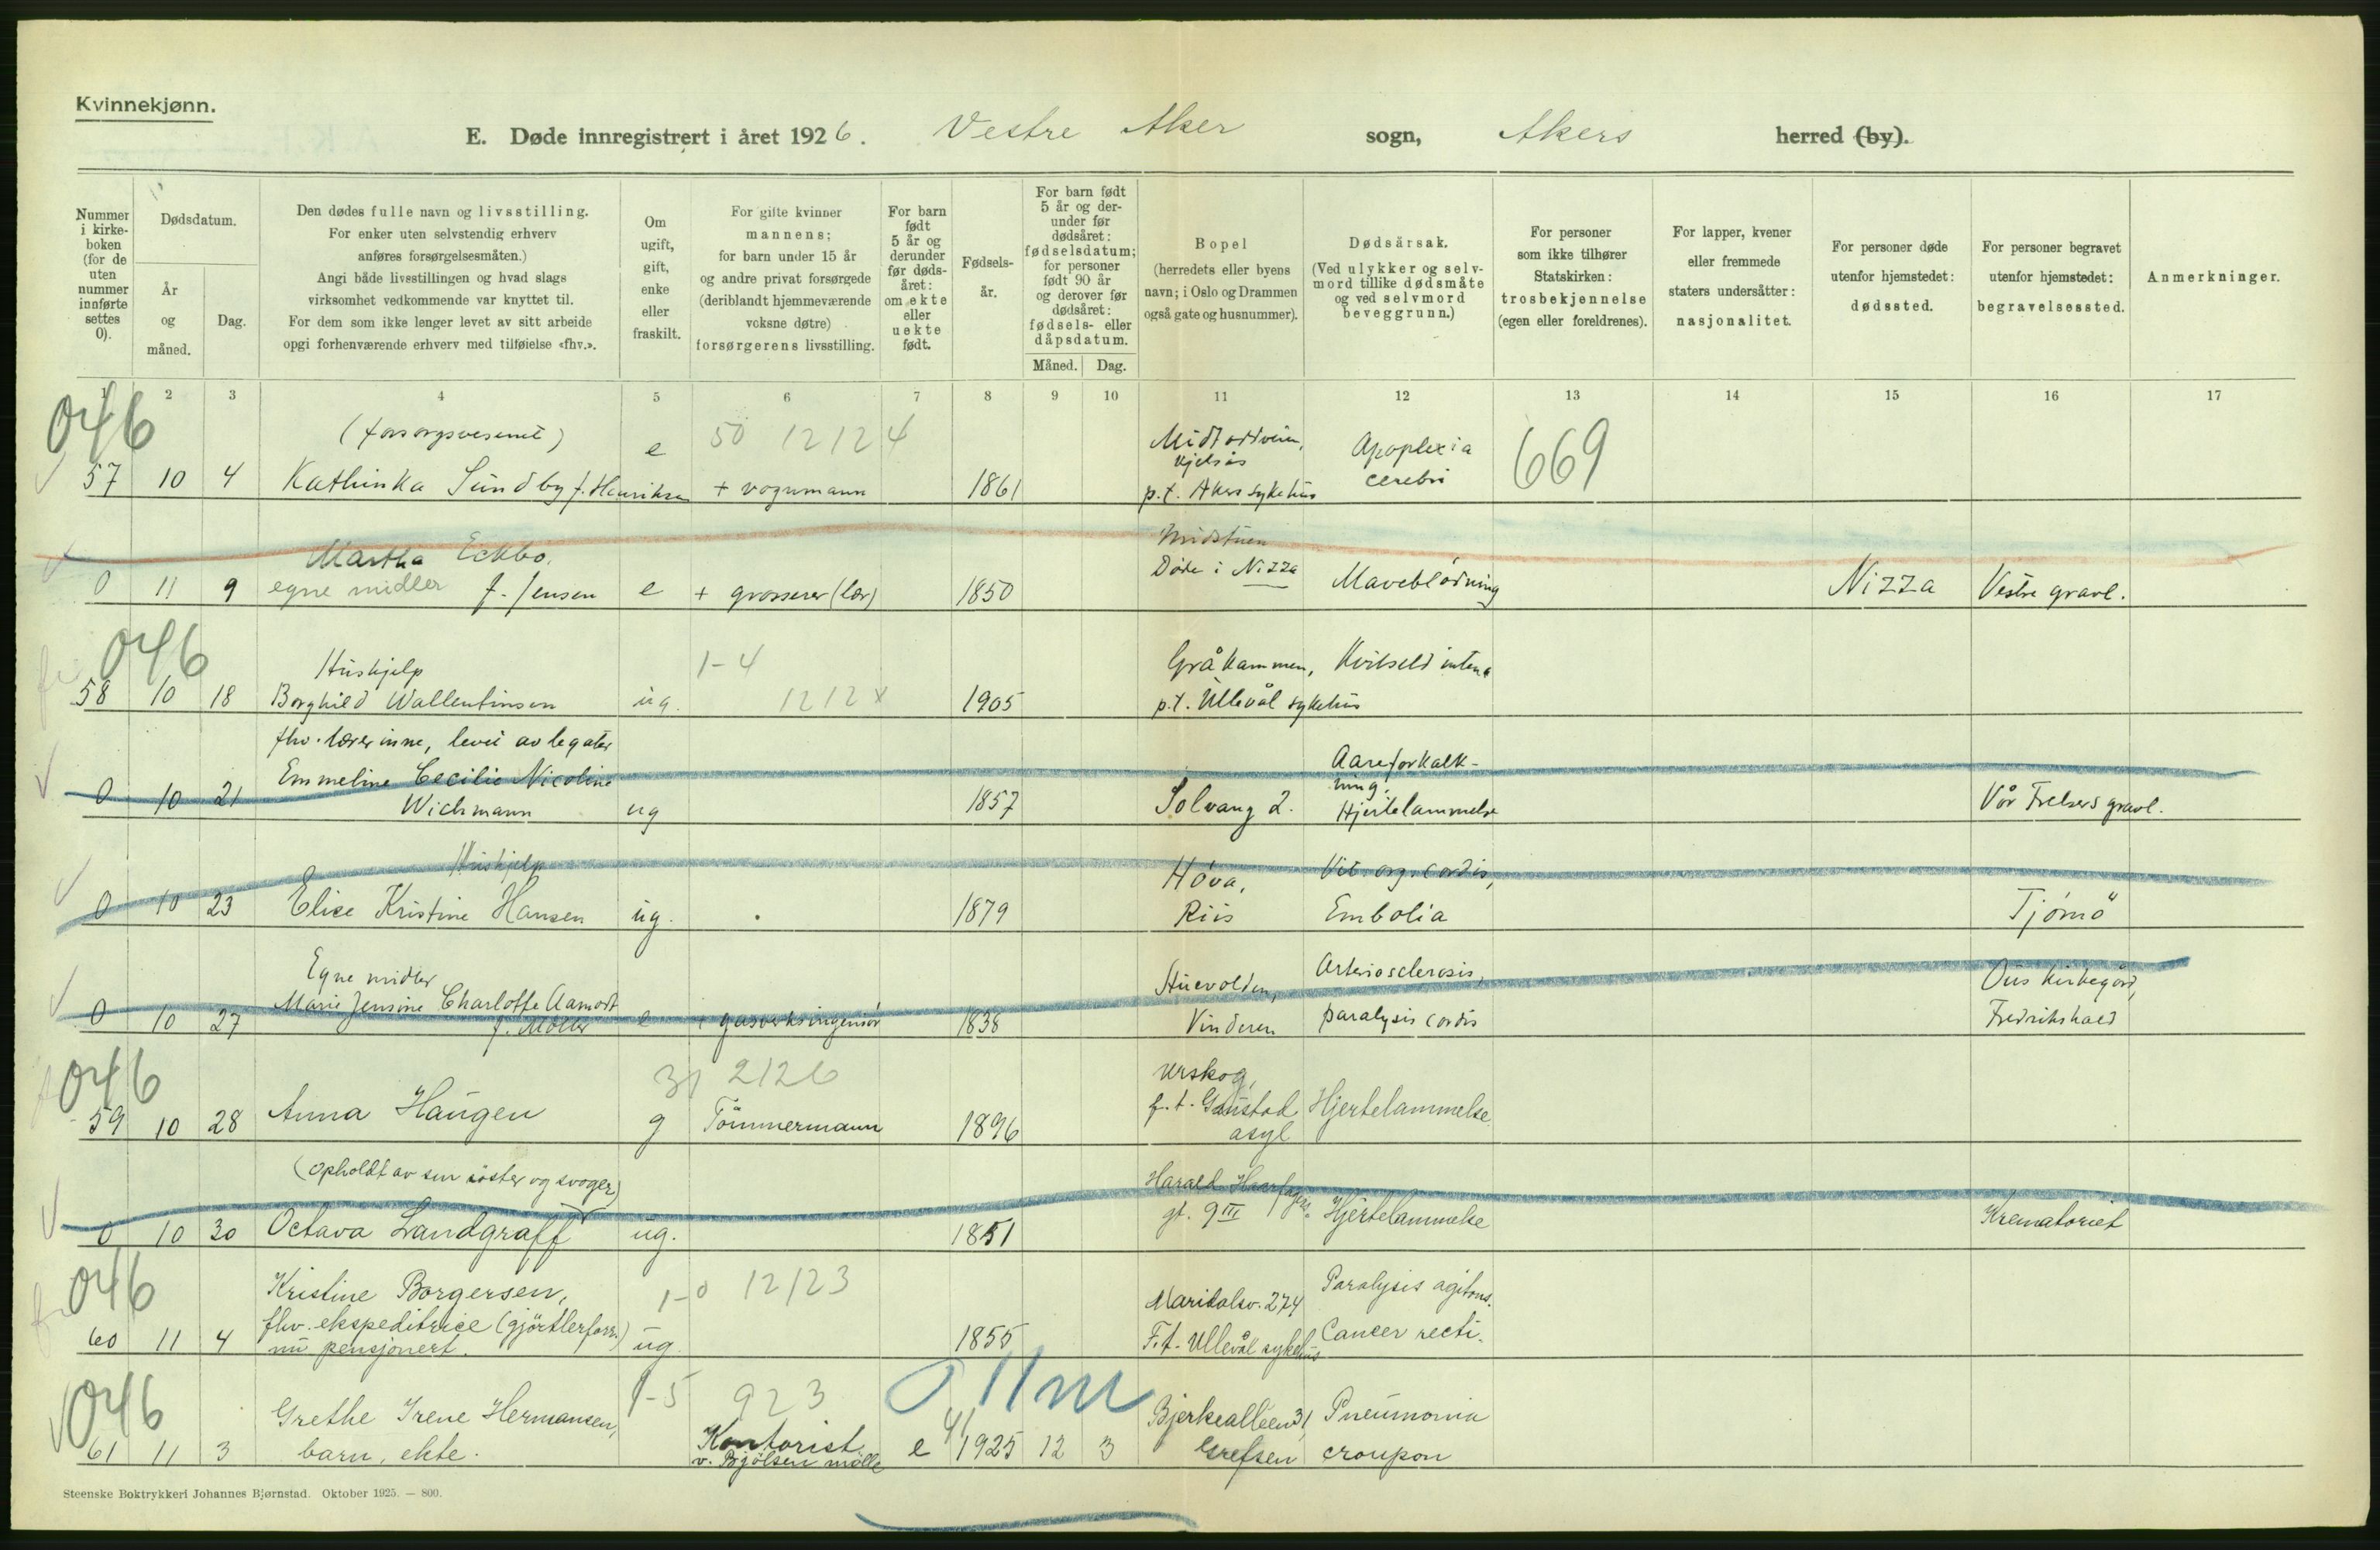 Kvinnekjønn.
E. Døde innregistrert i året 1926. Vestre Aker sogn, Akers herred (by).
Nummer i kirke-boken (for de uten nummer innførte settes 0).
Dødsdatum.
År og måned.
Dag.
Den dødes fulle navn og livsstilling.
For enker uten selvstendig erhverv
anføres forsørgelsesmåten.)
Angi både livsstillingen og hvad slags
virksomhet vedkommende var knyttet til.
For dem som ikke lenger levet av sitt arbeide
opgi forhenværende erhverv med tilføielse «fhv.».
Om ugift, gift, enke eller fraskilt.
For gifte kvinner
mannens;
for barn under 15 år
og andre privat forsørgede
(deriblandt hjemmeværende
voksne døtre)
forsørgerens livsstilling.
For barn født 5 år og derunder før døds-året: om ekte eller uekte født.
Fødsels-år.
For barn født 5 år og der-under før dødsåret: fødselsdatum; for personer født 90 år og derover før dødsåret: fødsels- eller dåpsdatum.
Måned. Dag.
Bopel
(herredets eller byens
navn; i Oslo og Drammen
også gate og husnummer).
Dødsårsak.
(Ved ulykker og selv-
mord tillike dødsmåte
og ved selvmord
beveggrunn.)
For personer
som ikke tilhører
Statskirken:
trosbekjennelse
(egen eller foreldrenes).
For lapper, kvener
eller fremmede
staters undersåtter:
nasjonalitet.
For personer døde
utenfor hjemstedet:
dødssted.
For personer begravet
utenfor hjemstedet:
begravelsessted.
Anmerkninger.
1 2 3 4 5 6 7 8 9 10 11 12 13 14 15 16 17
046
(forsorgsvesenet) e 50 12124 Apoplexia 669
Kjelsås
57 10 4 Kathinka Sundby f. Henriksen + vognmann 1861 p.t. Akers sykehus cerebri
Martha Eckbo, Midstuen
Døde i Nizza
0 11 9 egne midler f. Jensen e + grosserer (lær) 1850 Maveblödning Nizza Vestre gravl.
046
Hushjelp 1-4 Gråkammen,
58 10 18 Borghild Wallentinsen ug. 1212 x 1905 p.t. Ullevål sykehus
fhv. lærerinne, levet av legater
Emmeline Cecilie Nicoline Aareforkalk-
ning,
0 10 21 Wichmann ug 1857 Solvang 2. Hjertelammelse Vår Frelsers gravl.
Hushjelp Vit. org. cordis,
0 10 23 Elise Kristine Hansen ug. 1879 Riis Embolia Tjømö
Egne midler Arteriosclerosis,
Marie Jensine Charlotte Aamodt
0 10 27 f. Möller e + gasverksingeniør 1838 Vinderen paralysis cordis Fredrikshald
046
31 2126 Urskog,
59 10 28 Anna Haugen g Tömmermann 1896 f.t. Gaustad asyl Hjertelammelse
(opholdt av sin søster og svoger)
Harald Haarfagres
0 10 30 Octava Landgraff ug. 1851 gt. 9 III Hjertelammelse Krematoriet
046
Kristine Borgersen, 1-0 12/23 Maridalsv. 274 Paralysis agitans.
fhv. ekspeditrice (gjörtlerforr.)
60 11 4 nu pensjonert. ug. 1855 F.t. Ullevål sykehus Cancer recti.
046
1-5 923 0 11 m
Grethe Irene Hermansen, Kontorist Bjerkealleen 31, Pneumonia
61 11 3 barn, ekte. v. Bjölsen mölle e 1925 12 3 Grefsen croupon
Steenske Boktrykkeri Johannes Bjørnstad. Oktober 1925. — 800.